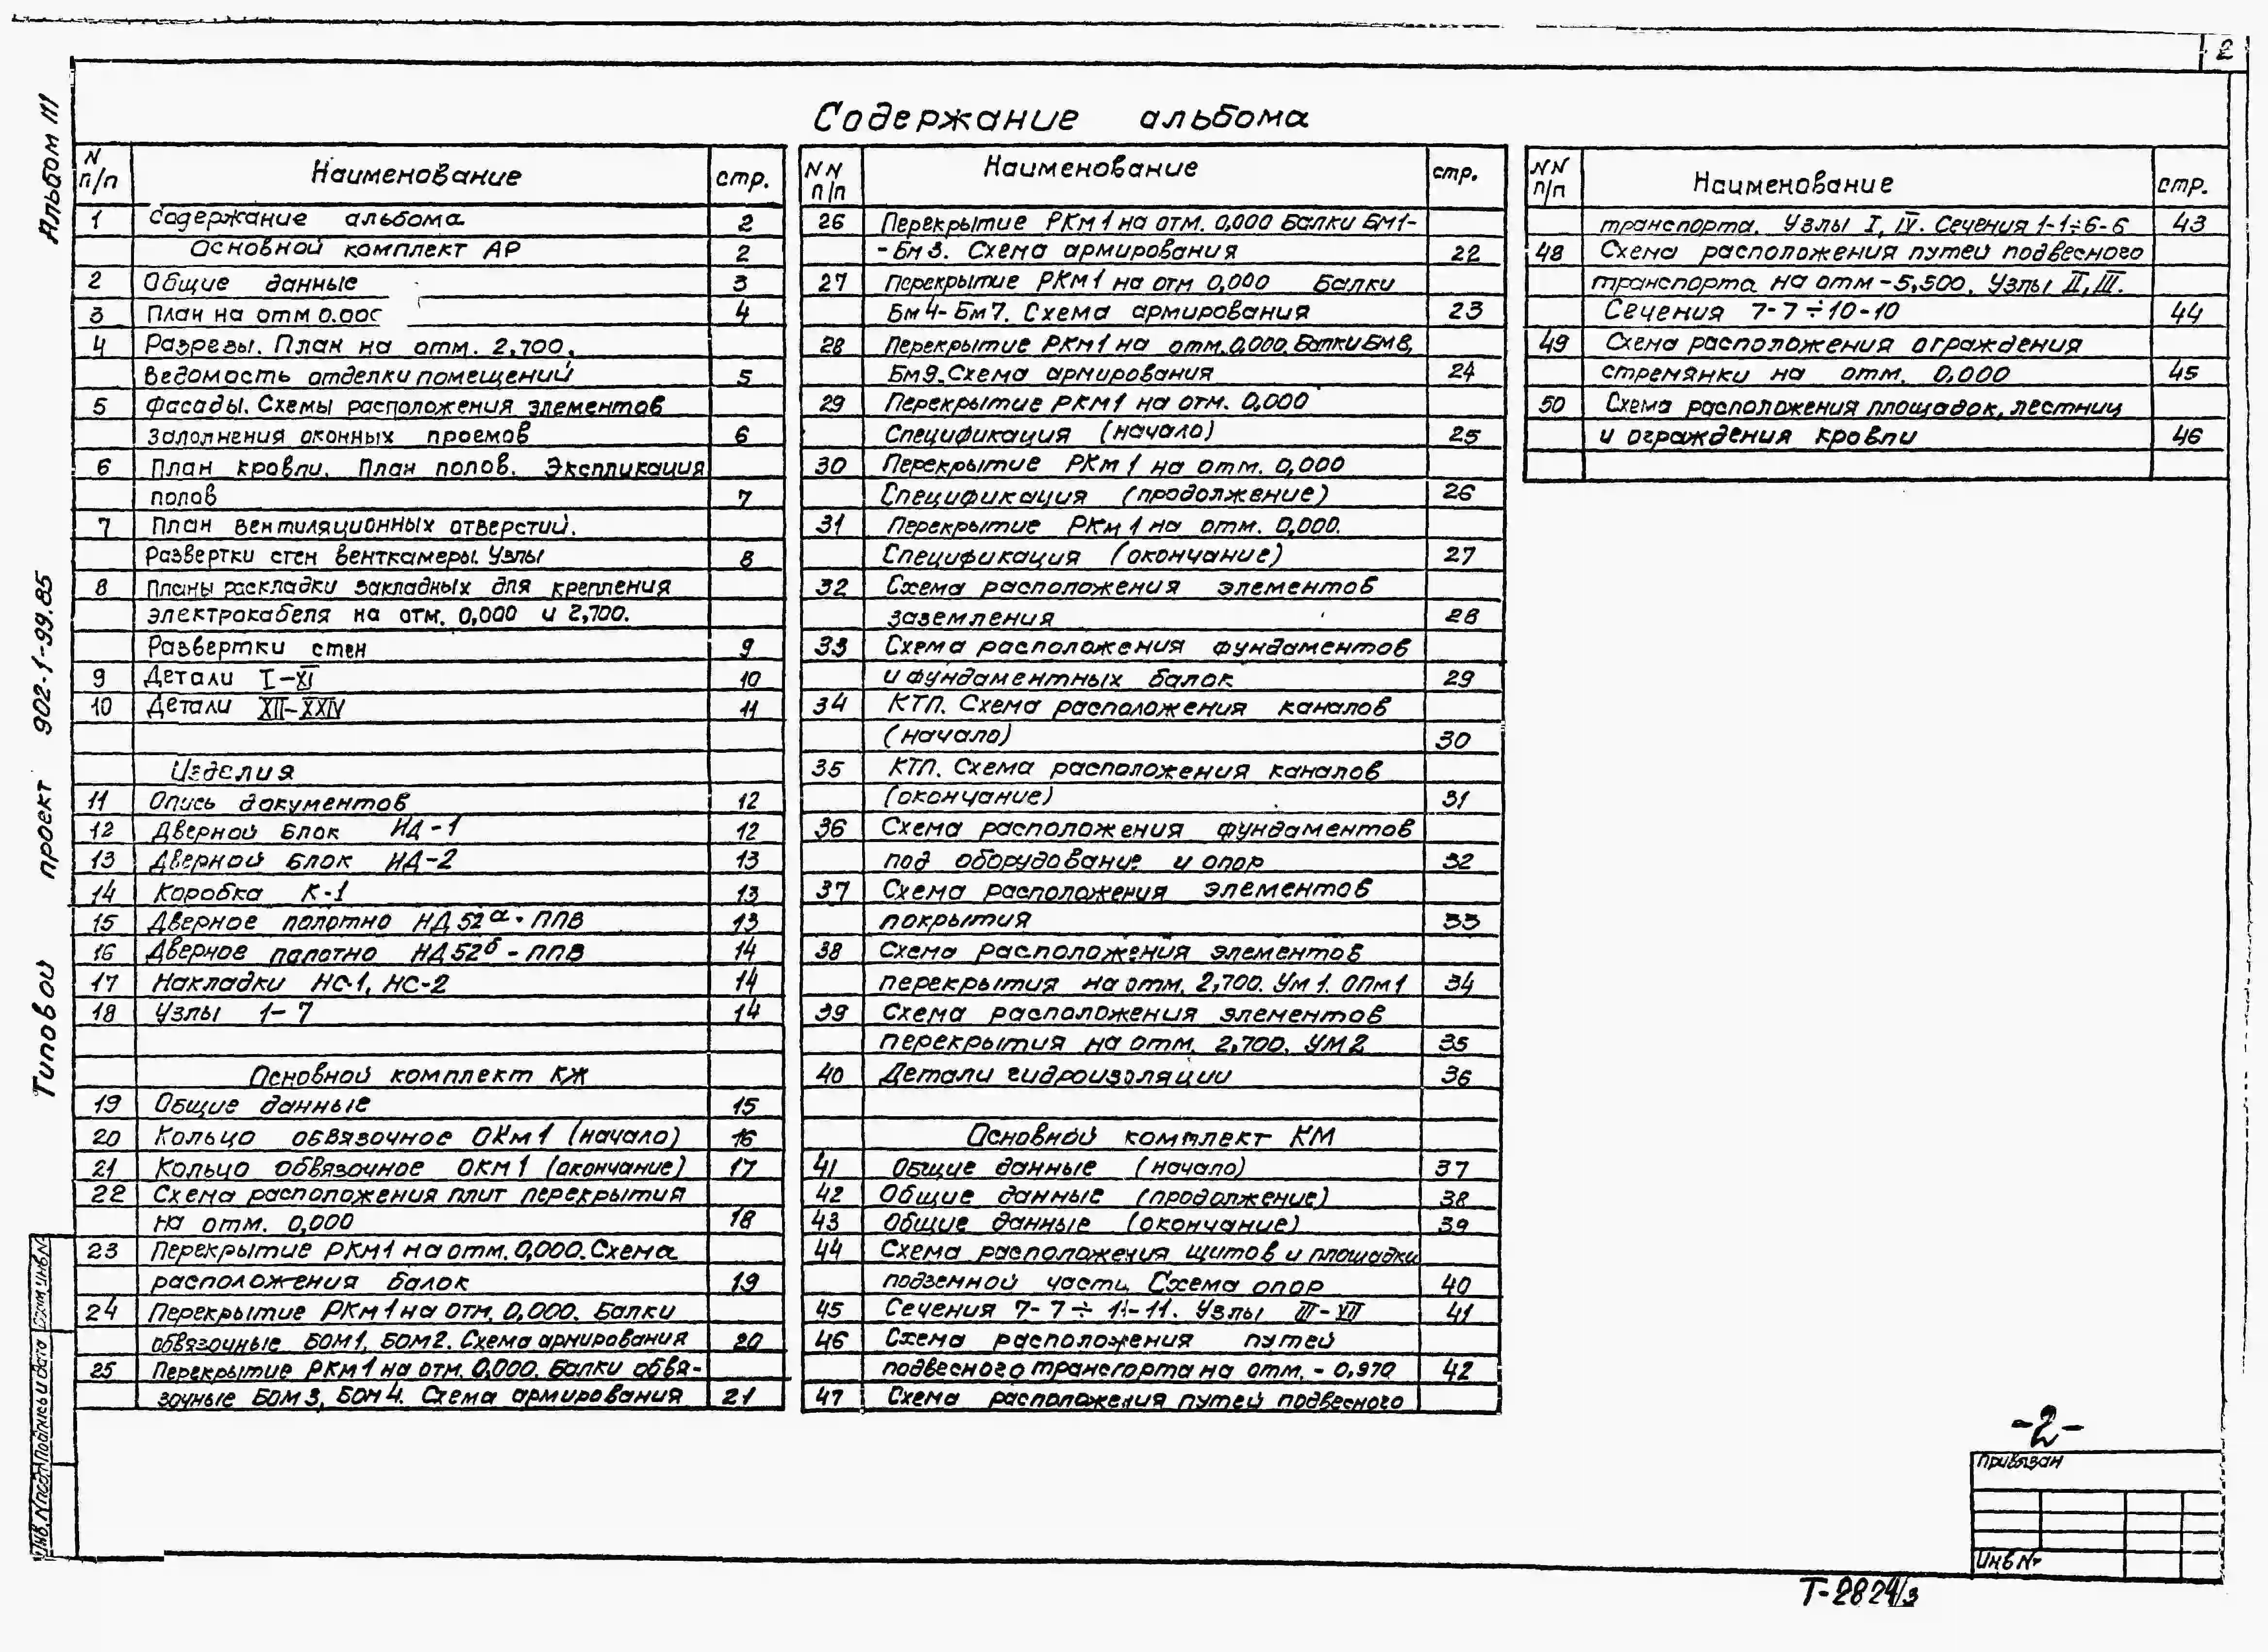 2
Альбом III
Типовой проект 902-1-99.85
Содержание альбома
N п/п Наименование стр.
1 Содержание альбома 2
Основной комплект АР 2
2 Общие данные 3
3 План на отм 0.000 4
4 Разрезы. План на отм. 2,700.
Ведомость отделки помещений 5
5 Фасады. Схемы расположения элементов
заполнения оконных проемов 6
6 План кровли. План полов. Экспликация
полов 7
7 План вентиляционных отверстий.
Развертки стен венткамеры. Узлы 8
8 Планы раскладки закладных для крепления
электрокабеля на отм. 0,000 и 2,700.
Развертки стен 9
9 Детали I-XI 10
10 Детали XII-XXIV 11
Изделия
11 Опись документов 12
12 Дверной блок НД-1 12
13 Дверной блок НД-2 13
14 Коробка К-1 13
15 Дверное полотно НД52а-ППВ 13
16 Дверное полотно НД52б-ППВ 14
17 Накладки НС-1, НС-2 14
18 Узлы 1-7 14
Основной комплект КЖ
19 Общие данные 15
20 Кольцо обвязочное ОКм1 (начало) 16
21 Кольцо обвязочное ОКм1 (окончание) 17
22 Схема расположения плит перекрытия
на отм. 0,000 18
23 Перекрытие РКм1 на отм. 0,000. Схема
расположения балок 19
24 Перекрытие РКм1 на отм. 0,000. Балки
обвязочные БОМ1, БОМ2. Схема армирования 20
25 Перекрытие РКм1 на отм. 0,000. Балки обвя-
зочные БОМ3, БОМ4. Схема армирования 21
NN п/п Наименование стр.
26 Перекрытие РКм1 на отм. 0,000 Балки БМ1-
-Бм3. Схема армирования 22
27 Перекрытие РКм1 на отм 0,000 Балки
Бм4-Бм7. Схема армирования 23
28 Перекрытие РКм1 на отм. 0,000. Балки Бм8,
Бм9. Схема армирования 24
29 Перекрытие РКм1 на отм. 0,000
Спецификация (начало) 25
30 Перекрытие РКм1 на отм. 0,000
Спецификация (продолжение) 26
31 Перекрытие РКм1 на отм. 0,000.
Спецификация (окончание) 27
32 Схема расположения элементов
заземления 28
33 Схема расположения фундаментов
и фундаментных балок 29
34 КТП. Схема расположения каналов
(начало) 30
35 КТП. Схема расположения каналов
(окончание) 31
36 Схема расположения фундаментов
под оборудование и опор 32
37 Схема расположения элементов
покрытия 33
38 Схема расположения элементов
перекрытия на отм. 2,700. Ум1. ОПм1 34
39 Схема расположения элементов
перекрытия на отм. 2,700. УМ2 35
40 Детали гидроизоляции 36
Основной комплект КМ
41 Общие данные (начало) 37
42 Общие данные (продолжение) 38
43 Общие данные (окончание) 39
44 Схема расположения щитов и площадки
подземной части. Схема опор 40
45 Сечения 7-7÷11-11. Узлы III-VII 41
46 Схема расположения путей
подвесного транспорта на отм. -0,970 42
47 Схема расположения путей подвесного
NN п/п Наименование стр.
транспорта. Узлы I, IV. Сечения 1-1÷6-6 43
48 Схема расположения путей подвесного
транспорта на отм -5,500. Узлы II, III.
Сечения 7-7÷10-10 44
49 Схема расположения ограждения
стремянки на отм. 0,000 45
50 Схема расположения площадок, лестниц
и ограждения кровли 46
-2-
Привязан
Инв №
Т-2824/3
Инв. N подл. Подпись и дата Взам. инв. N